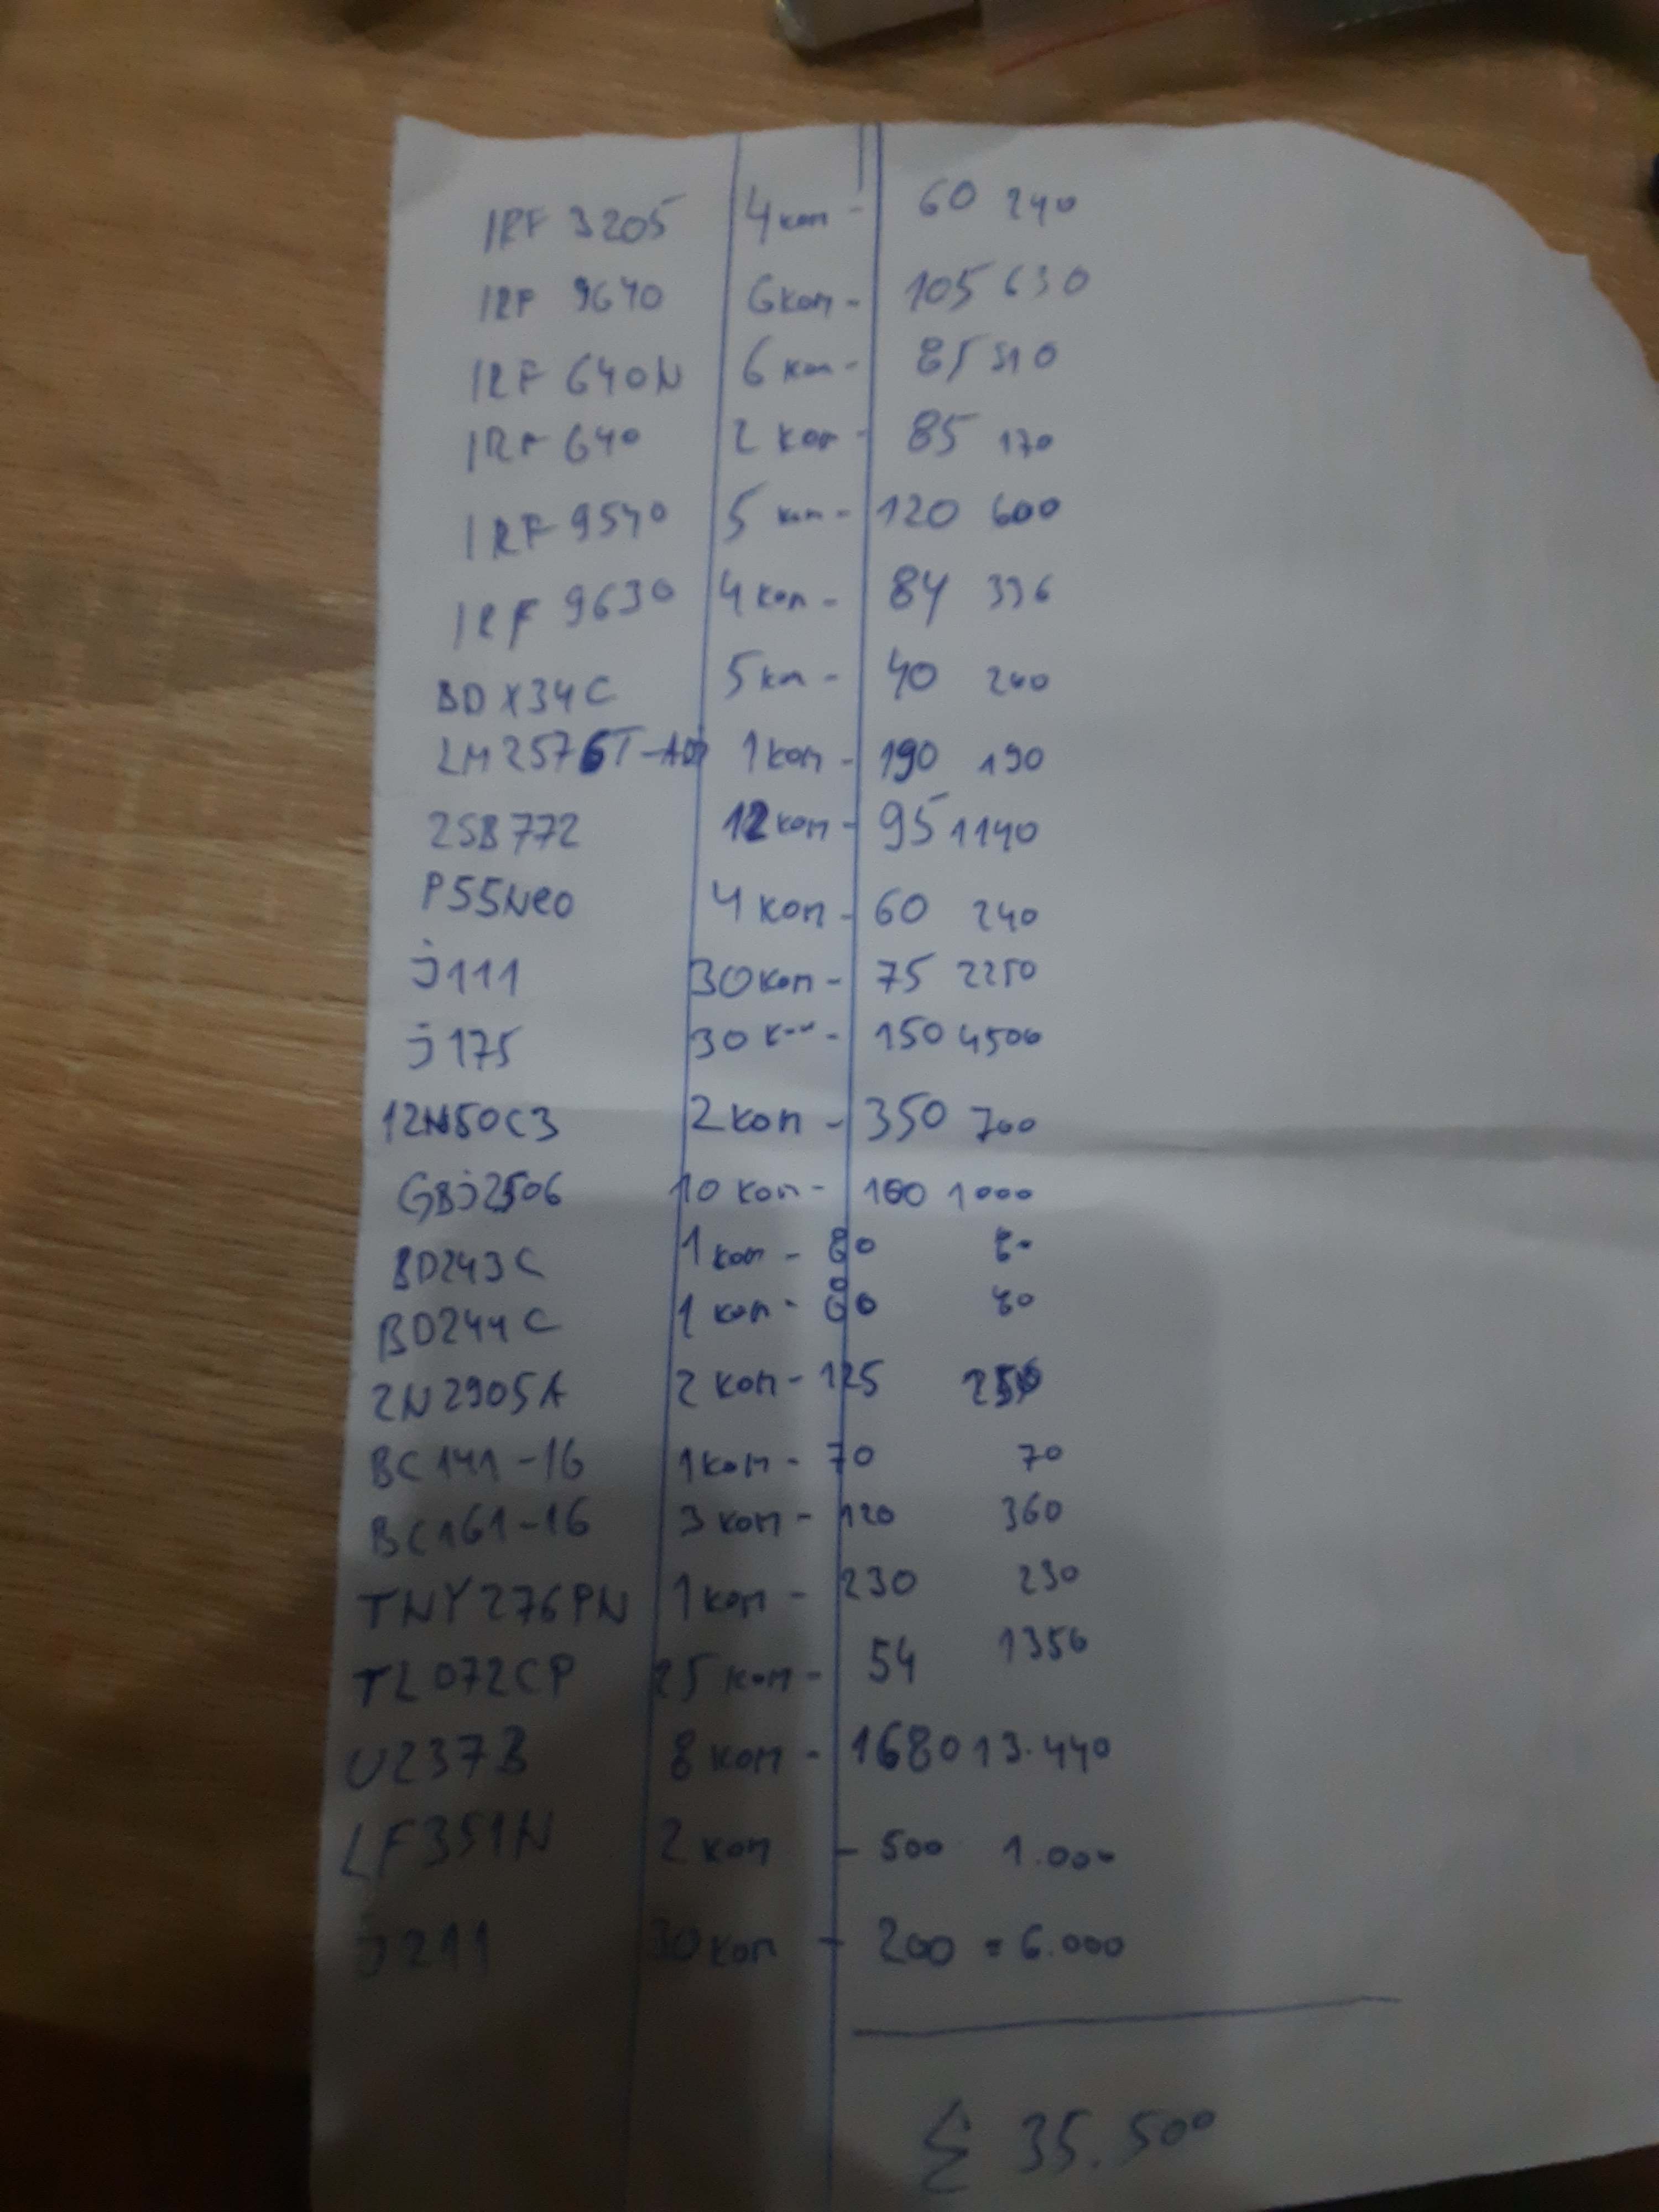 IRF 3205 4 коm - 60 240
IRF 9640 6 коm - 105 630
IRF 640N 6 коm - 85 510
IRF 640 2 коm - 85 170
IRF 9540 5 коm - 120 600
IRF 9630 4 коп - 84 336
BDX34C 5 коm - 40 200
LM2576T-ADJ 1 коm - 190 190
2SB772 12 коm - 95 1140
P55Neo 4 коm - 60 240
j111 30 коm - 75 2250
j175 30 коm - 150 4500
12N50C3 2 коп - 350 700
GBJ2506 10 коm - 100 1000
BD243C 1 коm - 80 80
BD244C 1 коm - 80 80
2N2905A 2 коm - 125 250
BC141-16 1 коm - 70 70
BC161-16 3 коm - 120 360
TNY276PN 1 коm - 230 230
TL072CP 25 коm - 54 1350
U237B 8 коm - 1680 13.440
LF351N 2 коm - 500 1.000
j211 30 коm - 200 = 6.000
Σ 35.500